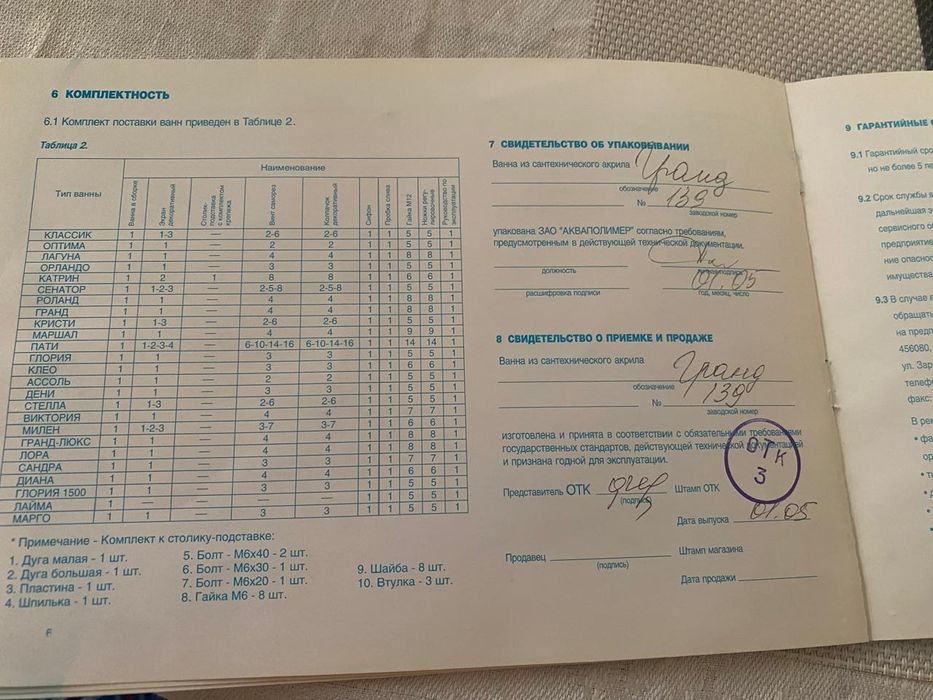 6 КОМПЛЕКТНОСТЬ
6.1 Комплект поставки ванн приведен в Таблице 2.
Таблица 2.
Тип ванны
Наименование
Ванна в сборке
Экран декоративный
Столик-подставка с комплектом крепежа
Винт саморез
Колпачок декоративный
Сифон
Пробка слива
Гайка М12
Ножки регулировочные
Руководство по эксплуатации
КЛАССИК 1 1-3 — 2-6 2-6 1 1 5 5 1
ОПТИМА 1 1 — 2 2 1 1 5 5 1
ЛАГУНА 1 1 — 4 4 1 1 8 8 1
ОРЛАНДО 1 1 — 3 3 1 1 5 5 1
КАТРИН 1 2 1 8 8 1 1 6 6 1
СЕНАТОР 1 1-2-3 — 2-5-8 2-5-8 1 1 5 5 1
РОЛАНД 1 1 — 4 4 1 1 8 8 1
ГРАНД 1 1 — 4 4 1 1 8 8 1
КРИСТИ 1 1-3 — 2-6 2-6 1 1 5 5 1
МАРШАЛ 1 1 — 4 4 1 1 9 9 1
ПАТИ 1 1-2-3-4 — 6-10-14-16 6-10-14-16 1 1 14 14 1
ГЛОРИЯ 1 1 — 3 3 1 1 5 5 1
КЛЕО 1 1 — 3 3 1 1 6 6 1
АССОЛЬ 1 1 — 2 2 1 1 5 5 1
ДЕНИ 1 1 — 3 3 1 1 5 5 1
СТЕЛЛА 1 1-3 — 2-6 2-6 1 1 5 5 1
ВИКТОРИЯ 1 1 — 4 4 1 1 7 7 1
МИЛЕН 1 1-2-3 — 3-7 3-7 1 1 6 6 1
ГРАНД-ЛЮКС 1 1 — 4 4 1 1 8 8 1
ЛОРА 1 1 — 4 4 1 1 8 8 1
САНДРА 1 1 — 3 3 1 1 7 7 1
ДИАНА 1 1 — 4 4 1 1 6 6 1
ГЛОРИЯ 1500 1 1 — 3 3 1 1 5 5 1
ЛАЙМА 1 — — — — 1 1 5 5 1
МАРГО 1 1 — 3 3 1 1 5 5 1
* Примечание - Комплект к столику-подставке:
1. Дуга малая - 1 шт.
2. Дуга большая - 1 шт.
3. Пластина - 1 шт.
4. Шпилька - 1 шт.
5. Болт - М6х40 - 2 шт.
6. Болт - М6х30 - 1 шт.
7. Болт - М6х20 - 1 шт.
8. Гайка М6 - 8 шт.
9. Шайба - 8 шт.
10. Втулка - 3 шт.
6
7 СВИДЕТЕЛЬСТВО ОБ УПАКОВЫВАНИИ
Ванна из сантехнического акрила Гранд
обозначение
№ 139
заводской номер
упакована ЗАО "АКВАПОЛИМЕР" согласно требованиям,
предусмотренным в действующей технической документации.
должность
личная подпись
01.05
расшифровка подписи
год, месяц, число
8 СВИДЕТЕЛЬСТВО О ПРИЕМКЕ И ПРОДАЖЕ
Ванна из сантехнического акрила Гранд
обозначение
№ 139
заводской номер
изготовлена и принята в соответствии с обязательными требованиями
государственных стандартов, действующей технической документацией
и признана годной для эксплуатации.
Представитель ОТК
(подпись)
Штамп ОТК
ОТК
3
Дата выпуска 01.05
Продавец
(подпись)
Штамп магазина
Дата продажи
9 ГАРАНТИЙНЫЕ
9.1 Гарантийный
но не более 5
9.2 Срок службы
дальнейшая
сервисного
предприятие
имущества
9.3 В случае
обращать
на
456080,
ул.
факс: